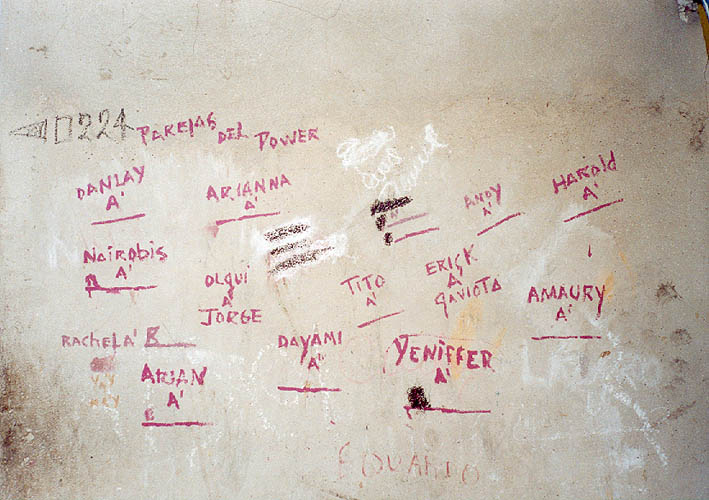 224 PAREJAS DEL POWER
DANLAY
A'
ARIANNA
A'
ANDY
A'
HAROLD
A'
NAIROBIS
A'
OLQUI
A'
JORGE
TITO
A'
ERICK
A'
GAVIOTA
AMAURY
A'
RACHEL A' B
DAYAMI
A'
YENIFFER
A'
ARIAN
A'
EDUARDO